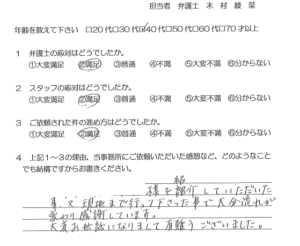 担当者 弁護士 木村綾菜
年齢を教えて下さい □20代□30代☑40代□50代□60代□70才以上
1 弁護士の応対はどうでしたか。
①大変満足 ②満足 ③普通 ④不満 ⑤大変不満 ⑥分からない
2 スタッフの応対はどうでしたか。
①大変満足 ②満足 ③普通 ④不満 ⑤大変不満 ⑥分からない
3 ご依頼された件の進め方はどうでしたか。
①大変満足 ②満足 ③普通 ④不満 ⑤大変不満 ⑥分からない
4 上記1～3の理由、当事務所にご依頼いただいた感想など、どのようなこと
でも結構ですからお書きください。
様を紹介していただいた
事、又、現地まで行って下さった事で大分流れが
変わり感謝しています。
大変お世話になりまして有難うございました。